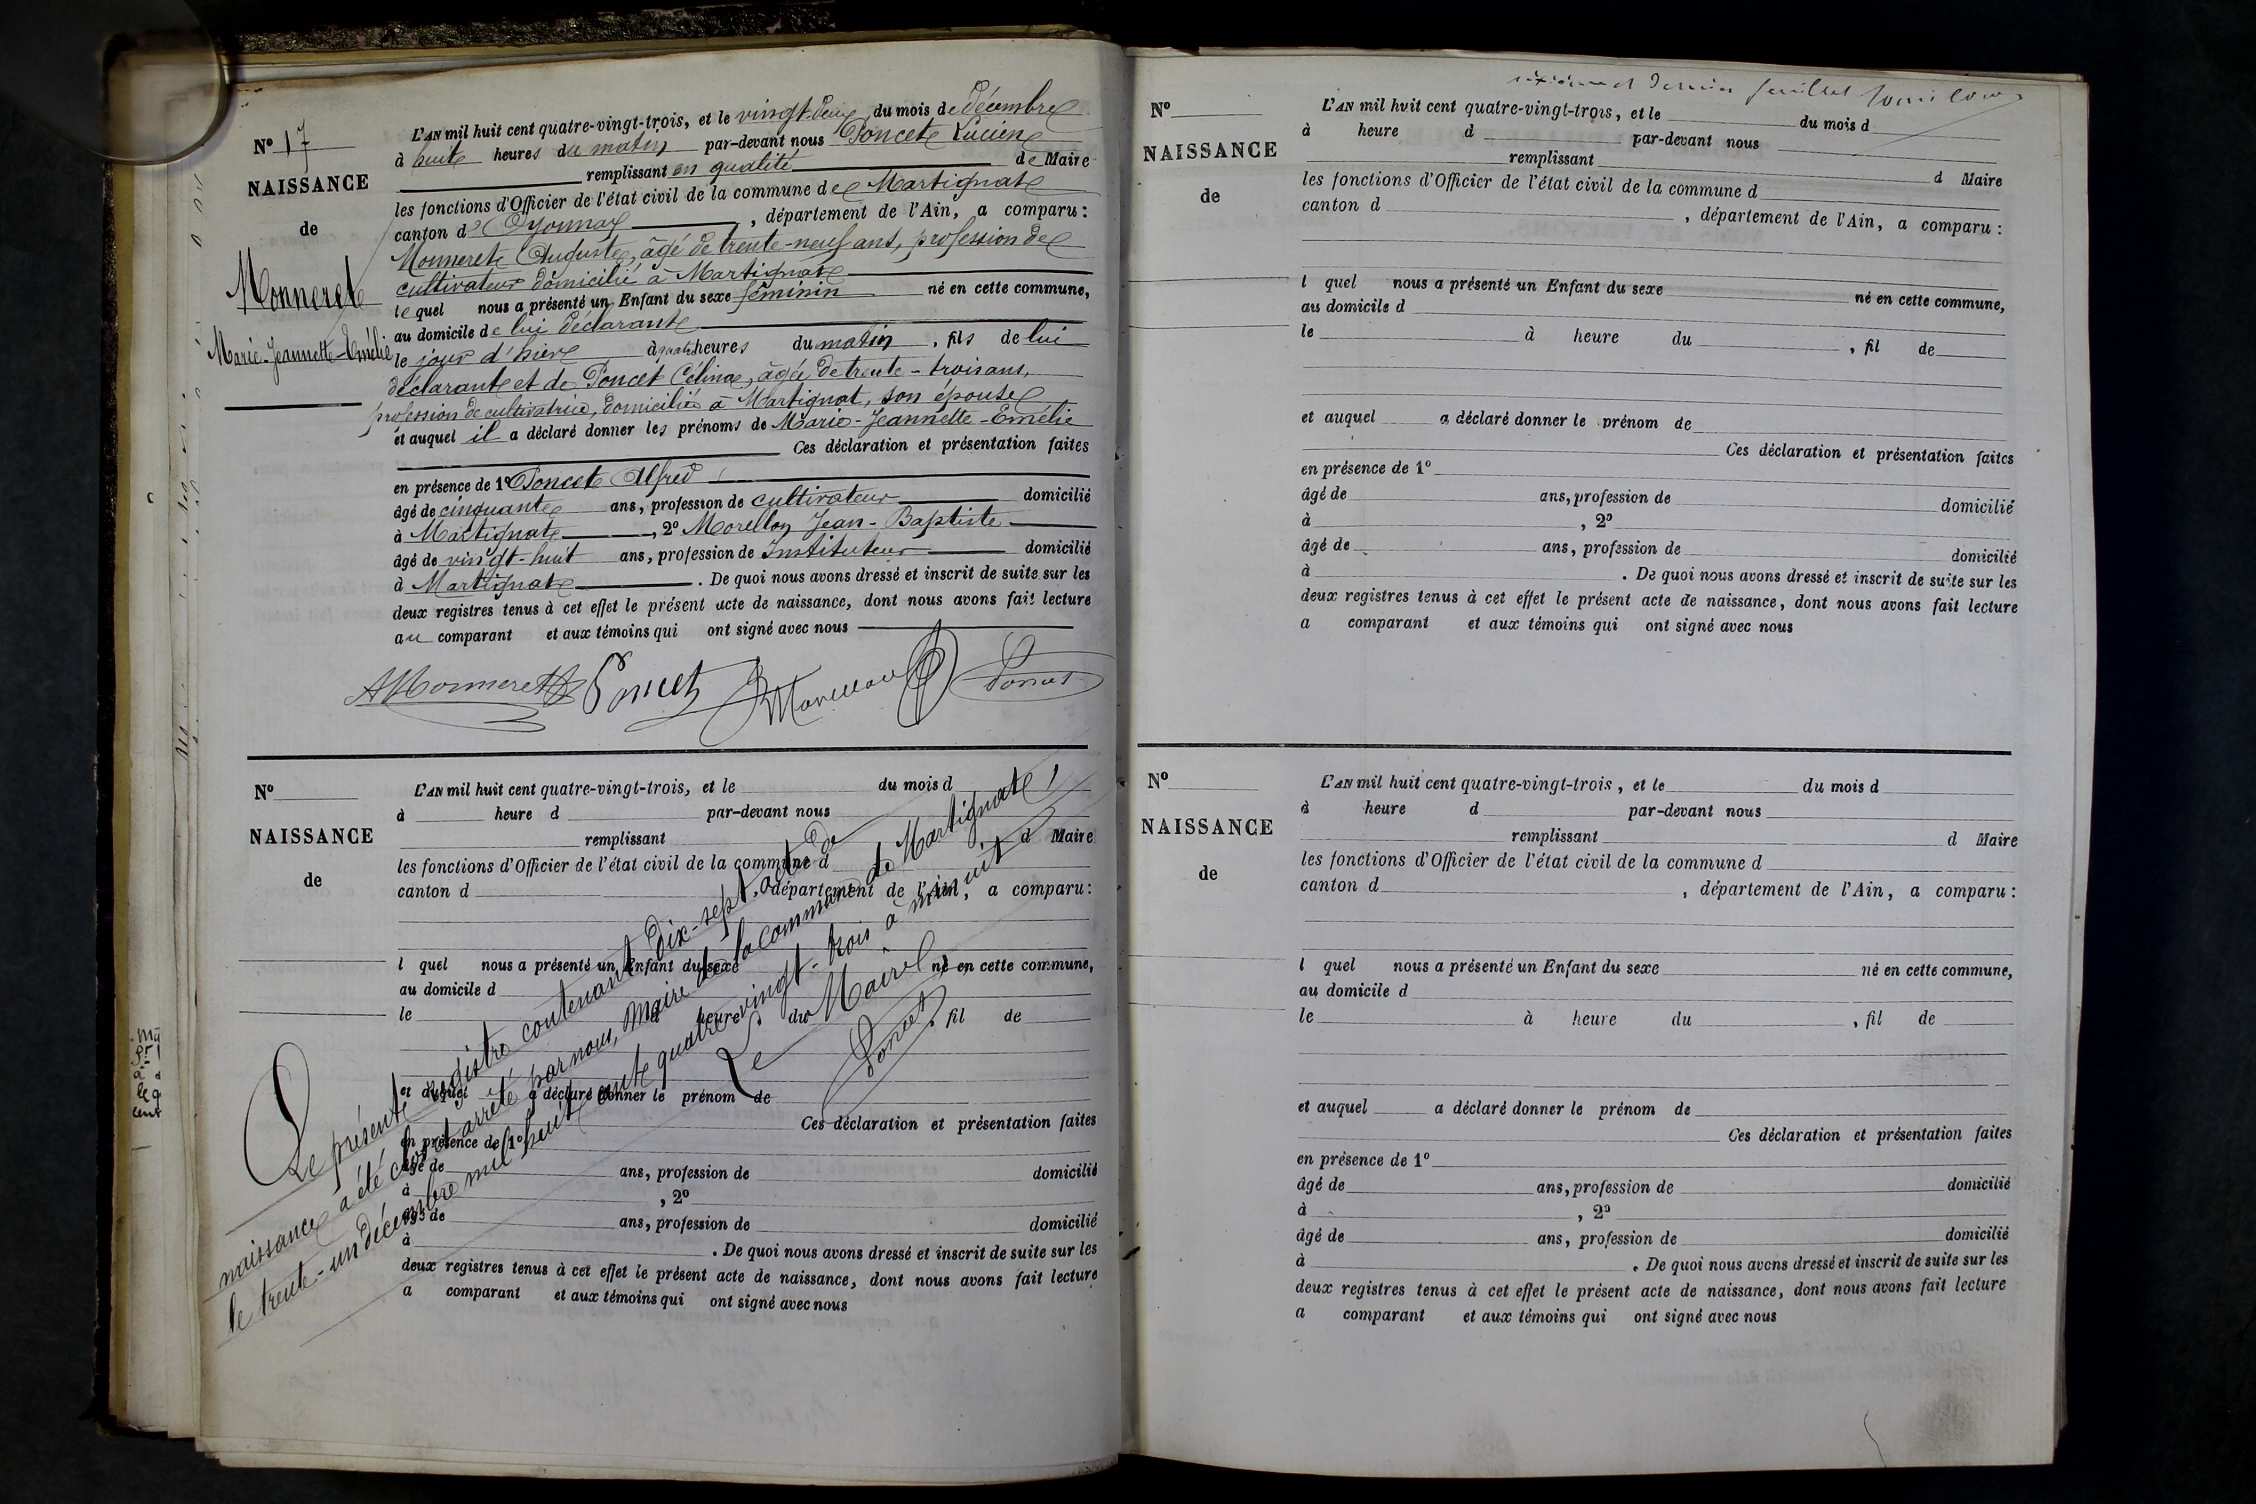 N° 17
NAISSANCE
de
Monneret
Marie-Jeannette-Emélie
L'AN mil huit cent quatre-vingt-trois, et le vingt-deux du mois de décembre
à huit heures du matin par-devant nous Poncet Lucien
remplissant en qualité de Maire
les fonctions d'Officier de l'état civil de la commune de Martignat
canton d'Oyonnax, département de l'Ain, a comparu:
Monneret Auguste, âgé de trente-neuf ans, profession de
cultivateur domicilié à Martignat
lequel nous a présenté un Enfant du sexe féminin né en cette commune,
au domicile de lui déclarant
le jour d'hier à quatre heures du matin, fils de lui
déclarant et de Poncet Célina, âgée de trente-trois ans,
profession de cultivatrice, domiciliée à Martignat, son épouse
et auquel il a déclaré donner les prénoms de Marie-Jeannette-Emélie
Ces déclaration et présentation faites
en présence de 1° Poncet Alfred
âgé de cinquante ans, profession de cultivateur domicilié
à Martignat, 2° Morellon Jean-Baptiste
âgé de vingt-huit ans, profession de Instituteur domicilié
à Martignat. De quoi nous avons dressé et inscrit de suite sur les
deux registres tenus à cet effet le présent acte de naissance, dont nous avons fait lecture
au comparant et aux témoins qui ont signé avec nous
AMonneret Poncet Morellon Poncet
N°
NAISSANCE
de
L'AN mil huit cent quatre-vingt-trois, et le du mois d
à heure d par-devant nous
remplissant d Maire
les fonctions d'Officier de l'état civil de la commune d
canton d , département de l'Ain, a comparu:
l quel nous a présenté un Enfant du sexe né en cette commune,
au domicile d
le à heure du , fil de
et auquel a déclaré donner le prénom de
Ces déclaration et présentation faites
en présence de 1°
âgé de ans, profession de domicilié
à , 2°
âgé de ans, profession de domicilié
à . De quoi nous avons dressé et inscrit de suite sur les
deux registres tenus à cet effet le présent acte de naissance, dont nous avons fait lecture
a comparant et aux témoins qui ont signé avec nous
Le présent registre contenant dix-sept actes de
naissance a été clos et arrêté par nous, Maire de la commune de Martignat
le trente-un décembre mil huit cent quatre-vingt-trois à minuit
Le Maire
Poncet
dernier feuillet
N°
NAISSANCE
de
L'AN mil huit cent quatre-vingt-trois, et le du mois d
à heure d par-devant nous
remplissant d Maire
les fonctions d'Officier de l'état civil de la commune d
canton d , département de l'Ain, a comparu:
l quel nous a présenté un Enfant du sexe né en cette commune,
au domicile d
le à heure du , fil de
et auquel a déclaré donner le prénom de
Ces déclaration et présentation faites
en présence de 1°
âgé de ans, profession de domicilié
à , 2°
âgé de ans, profession de domicilié
à . De quoi nous avons dressé et inscrit de suite sur les
deux registres tenus à cet effet le présent acte de naissance, dont nous avons fait lecture
a comparant et aux témoins qui ont signé avec nous
N°
NAISSANCE
de
L'AN mil huit cent quatre-vingt-trois, et le du mois d
à heure d par-devant nous
remplissant d Maire
les fonctions d'Officier de l'état civil de la commune d
canton d , département de l'Ain, a comparu:
l quel nous a présenté un Enfant du sexe né en cette commune,
au domicile d
le à heure du , fil de
et auquel a déclaré donner le prénom de
Ces déclaration et présentation faites
en présence de 1°
âgé de ans, profession de domicilié
à , 2°
âgé de ans, profession de domicilié
à . De quoi nous avons dressé et inscrit de suite sur les
deux registres tenus à cet effet le présent acte de naissance, dont nous avons fait lecture
a comparant et aux témoins qui ont signé avec nous